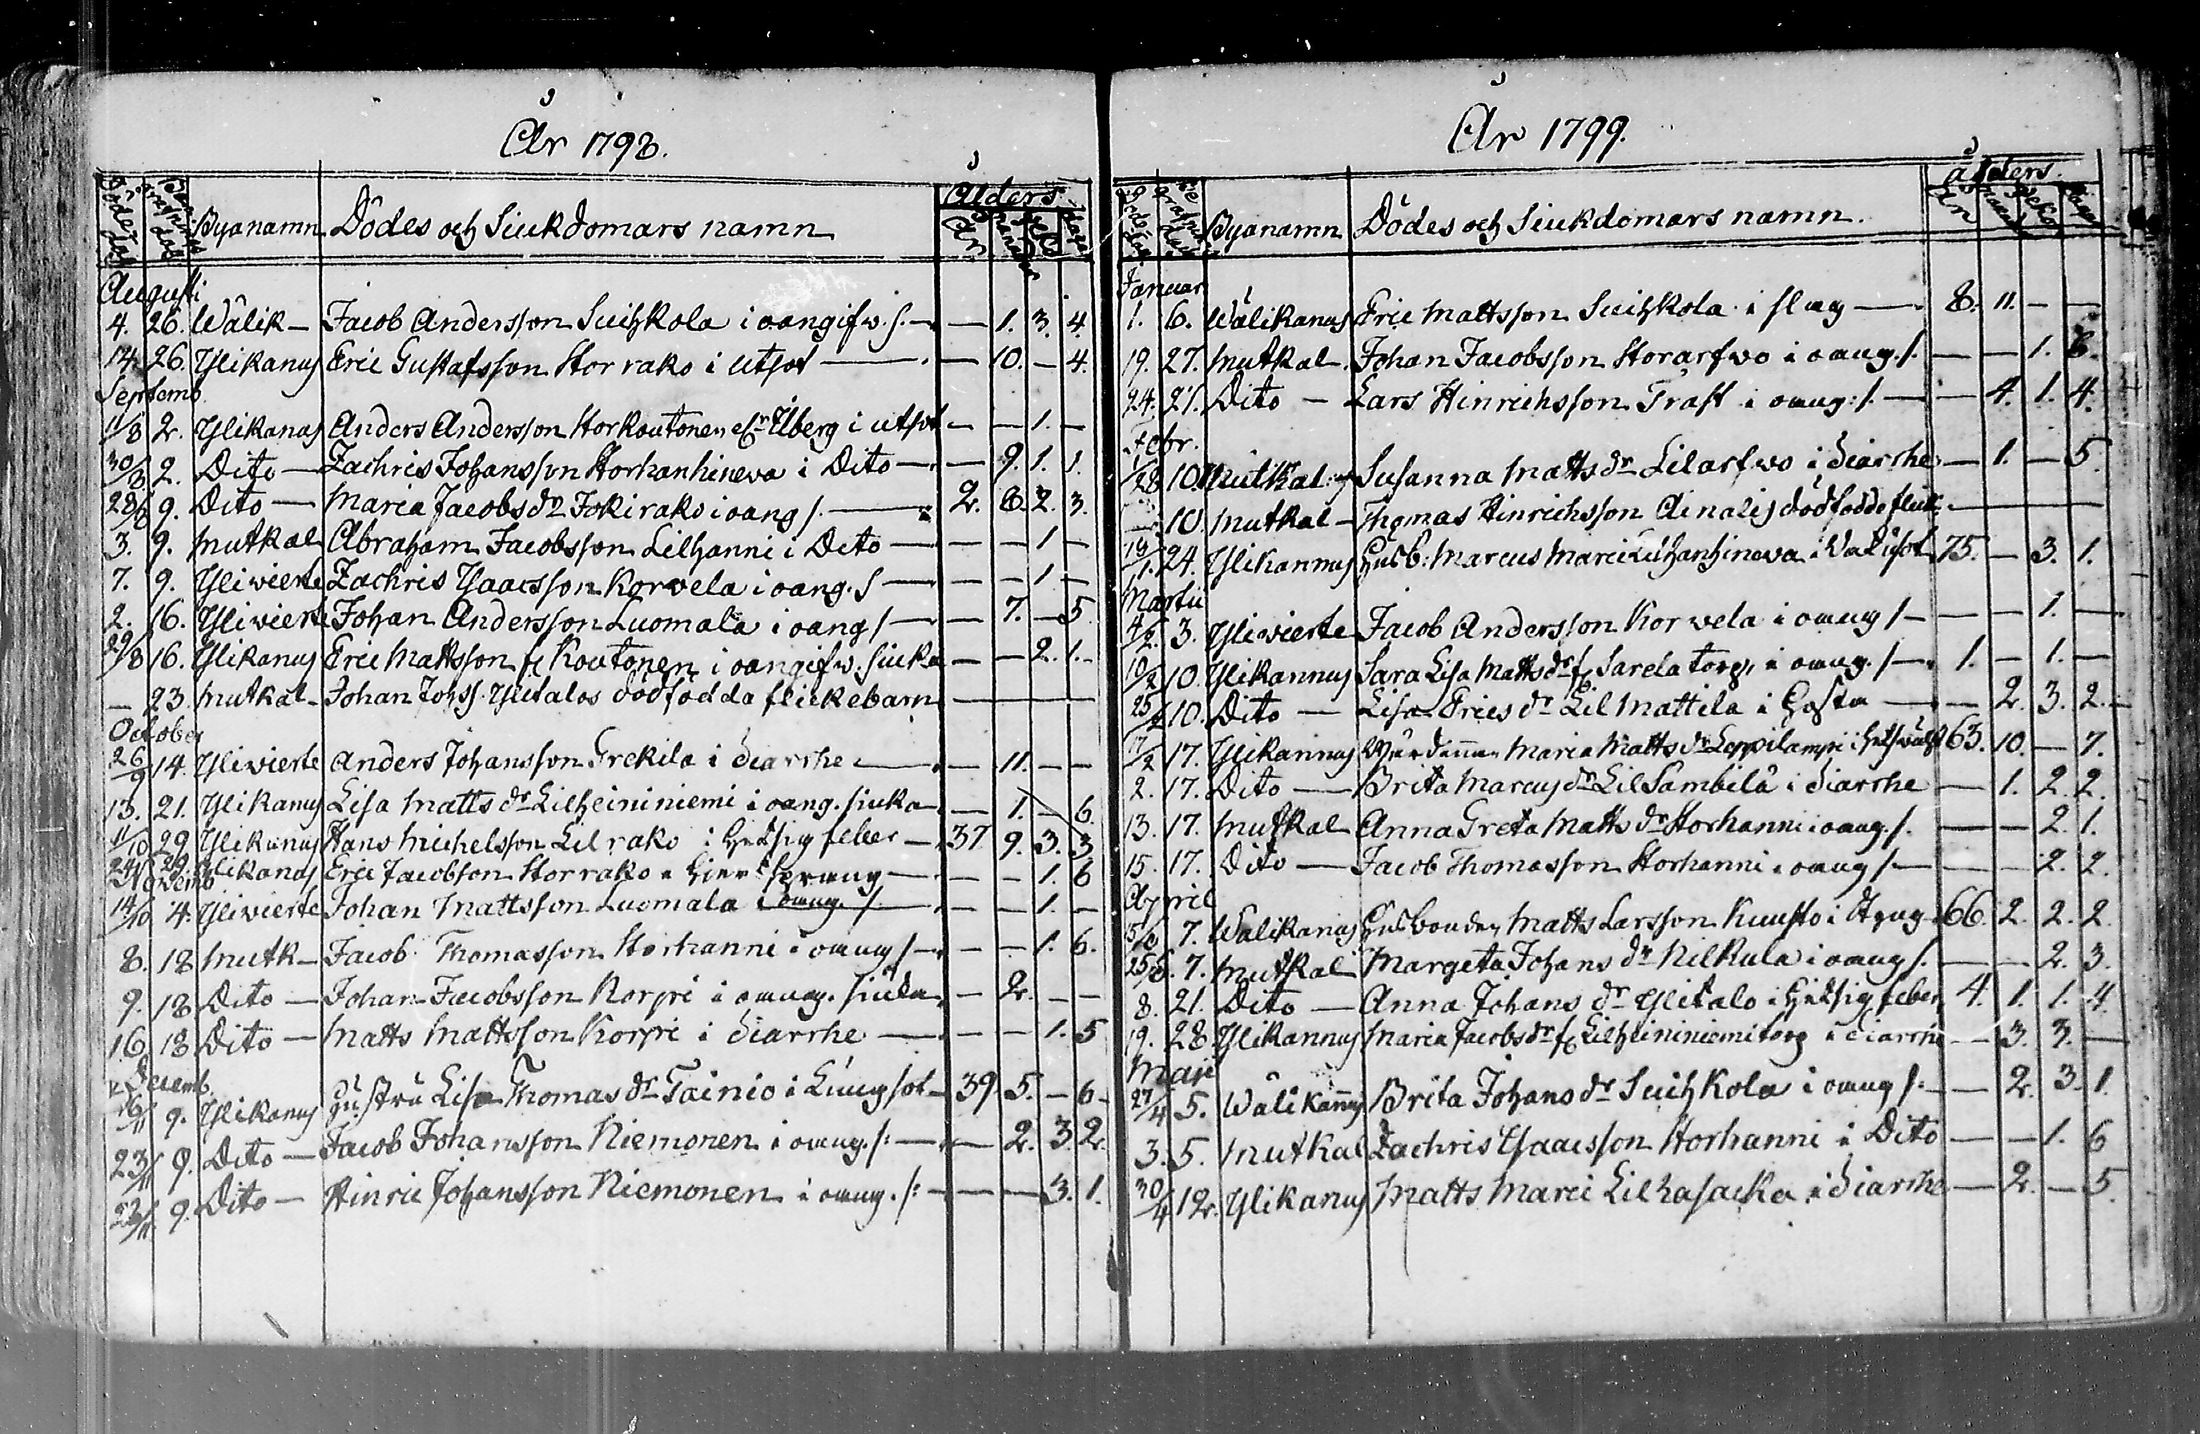 År 1798.
Dödedag Begrafnings dag Byanamn Dödes och Siukdomars namn Ålders År månader Dagar
Augusti
4. 26. Wälik — Jacob Andersson Suihkola i oangifw. s. — — 1. 3. 4.
14. 26. Ylikanus Eric Gustafsson Storrako i utsot — — 10. — 4.
Septemb.
11/8 2. Ylikanus Anders Andersson Storkoutonen Åberg i utsot — — 1. —
30/8 2. Dito — Zachris Johansson Storhanhineva i Dito — — 9. 1. 1.
28/8 9. Dito — Maria Jacobs dr Jokirako i oang s. — 2. 8. 2. 3.
3. 9. Mutkal Abraham Jacobsson Lilhanni i Dito — — — 1 —
7. 9. Ylivierte Zachris Ysaacsson Korvela i oang. s — — — 1 —
2. 16. Ylivierte Johan Andersson Luomala i oang s — — 7. — 5
29/8 16. Ylikanus Eric Mattsson Koutonen i oangifw. siuka — — 2. 1. —
— 23. Mutkal — Johan Johss. Ylitalos dödfödda flickebarn —
October
26/9 14. Ylivierte Anders Johansson Grekila i diarrhe — — 11. — —
13. 21. Ylikanus Lisa Matts dr Lilheininiemi i oang. siuka — — 1. — 6.
11/10 29. Ylikanus Hans Michelsson Lilrako i Hetsig feber — 37. 9. 3. 3
24 29 Ylikanus Eric Jacobson Storrako — — 1. 6
Novemb
14/10 4. Ylivierte Johan Mattsson Luomala i oang. s. — — — 1. —
8. 18 Mutk — Jacob Thomasson Storhanni i oang s — — — 1. 6.
9. 18 Dito — Johan Jacobsson Korpi i oang. siuka — 2. — —
16 18 Dito — Matts Mattsson Korpi i diarrhe — — — 1. 5
Decemb.
16/11 9. Ylikanus Hustru Lisa Thomas dr Tainio i Lungsot — 39. 5. — 6 —
23/11 9. Dito — Jacob Johansson Niemonen i oang. s: — — 2. 3. 2.
22/11 9. Dito — Hinric Johansson Niemonen i oang. s: — — — 3. 1.
År 1799.
Byanamn Dödes och Siukdomars namn. ålders. År
Januar
1. 6. Wälikanus Eric Mattsson Suihkola i slag — 8. 11. — —
19. 27. Mutkal. Johan Jacobsson Storarfwo i oang. s. — — 1. 6.
24. 27. Dito — Lars Hinrichsson Trast i oang: s. — — 4. 1. 4.
Febr.
10. Mutkal. Susanna Matts dr Lilarfwo i diarrhe — 1. — 5.
— 10. Mutkal — Thomas Hinrichsson Ainalis dödfödde flick. —
19/1 24. Ylikannus Husb: Marcus Marci Lilhanhineva i Vatusot 75. — 3. 1.
Martii
4/2 3. Ylivierte Jacob Andersson Korvela i oang s — — — 1. —
10/2 10. Ylikannus Sara Lisa Matts dr Sarela torp i oang. s — 1. — 1. —
25/2 10. Dito — Lisa Erics dr Lil Mattila i Hosta — — 2. 3. 2. —
17/2 17. Ylikannus Maria Matts dr Leppilampi 63. 10. — 7.
2. 17. Dito — Brita Marcus dr Lil Sambila i diarrhe — 1. 2. 2.
13. 17. Mutkal Anna Greta Matts dr Storhanni i oang. s. — — 2. 1.
15. 17. Dito — Jacob Thomasson Storhanni i oang s — — — 2. 2.
April
7. Wälikanus Husbonden Matts Larsson Kuusto i Styng. 66. 2. 2. 2
7. Mutkal Margeta Johans dr Nilkula i oang s. — — 2. 3.
8. 21. Dito — Anna Johans dr Ylitalo i Hetsig feber 4. 1. 1. 4.
19. 28. Ylikannus Maria Jacobs dr Lilheininiemi torp i diarrhe — 3. 3. —
Maji
27/4 5. Wälikannus Brita Johans dr Suihkola i oang s: — 2. 3. 1.
3. 5. Mutkal Zachris Ysaacsson Storhanni i Dito — — 1. 6
30/4 12. Ylikanus Matts Marci Lilhasacka i diarrhe — 2. — 5.